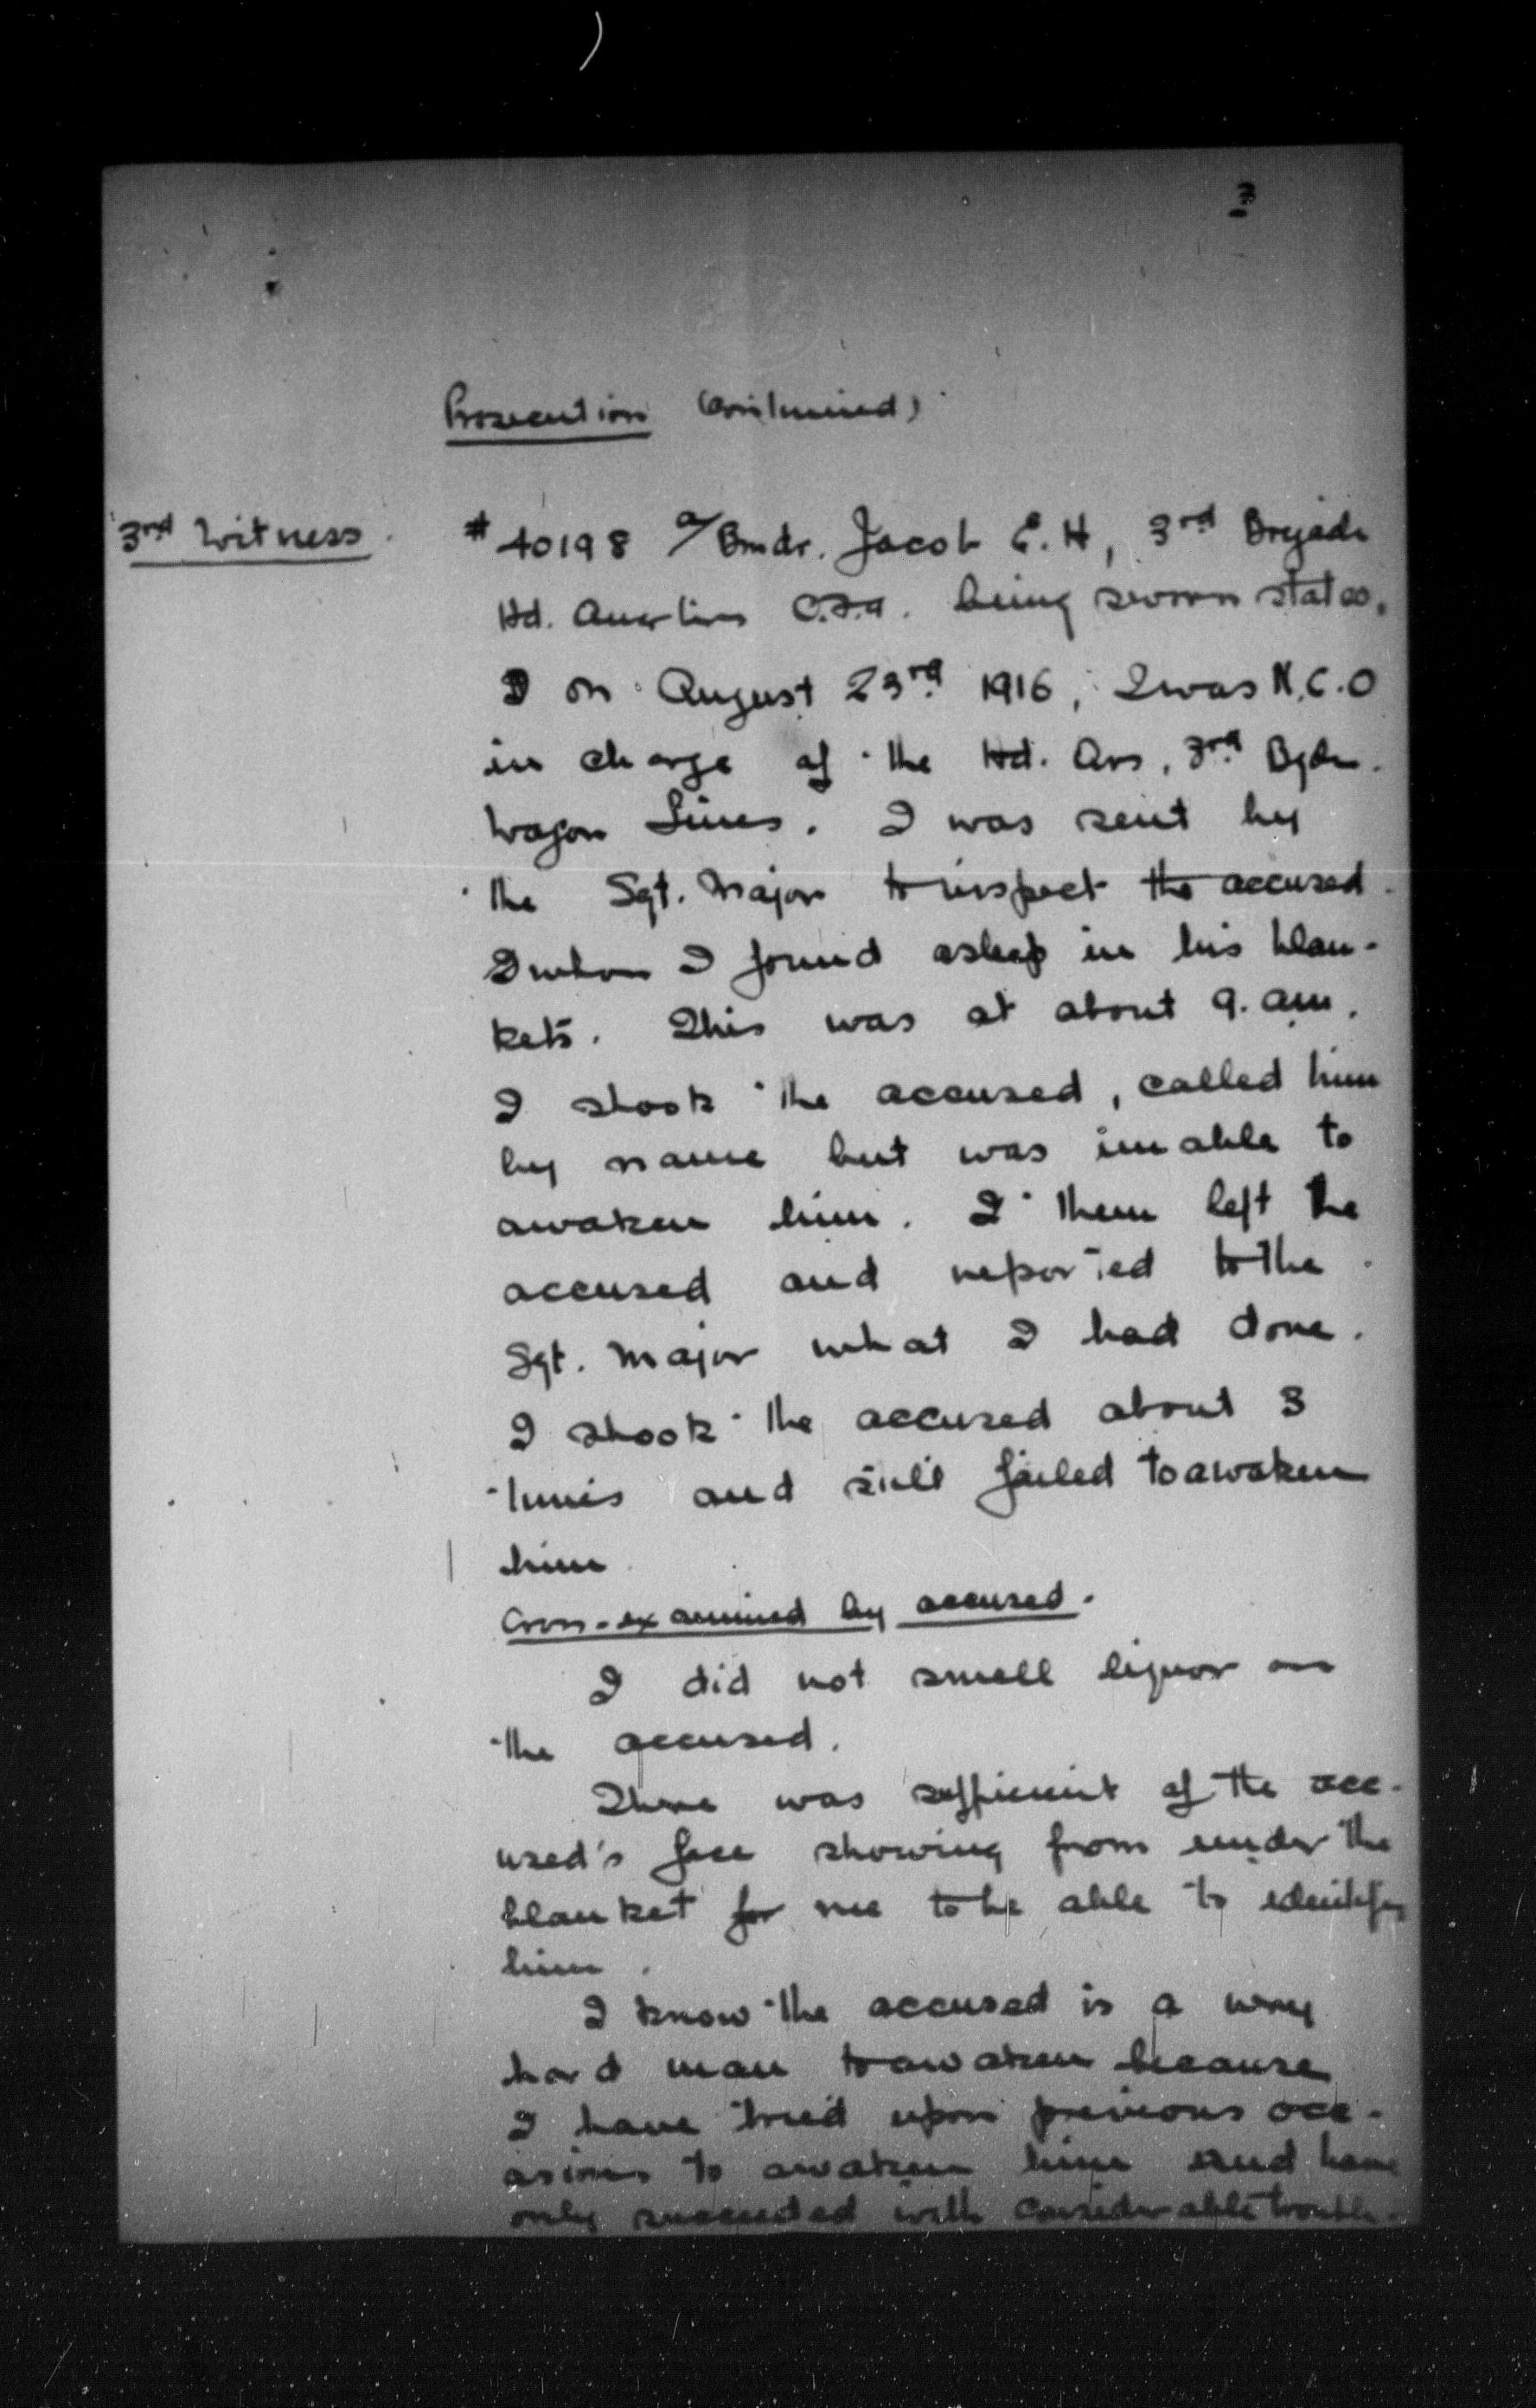 3
Prosecution (Continued)
3rd Witness. # 40198 a/Bmdr. Jacob E.H, 3rd Brigade
Hd. Quarters C.F.A. being sworn states,
I on August 23rd 1916, I was N.C.O
in charge of the Hd. Qrs, 3rd Bgde.
Wagon Lines. I was sent by
the Sgt. Major to inspect the accused.
I whom I found asleep in his blan-
kets. This was at about 9. am.
I shook the accused, called him
by name but was unable to
awaken him. I then left the
accused and reported to the
Sgt. Major what I had done.
I shook the accused about 3
times and still failed to awaken
him
Cross-examined by accused.
I did not smell liquor on
the accused.
There was sufficient of the acc-
used's face showing from under the
blanket for me to be able to identify
him.
I know the accused is a very
hard man to awaken because
I have tried upon previous occ-
asions to awaken him and have
only succeeded with considerable trouble.